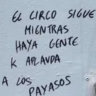 EL CIRCO SIGUE
MIENTRAS
HAYA GENTE
K APLAUDA
A LOS
PAYASOS